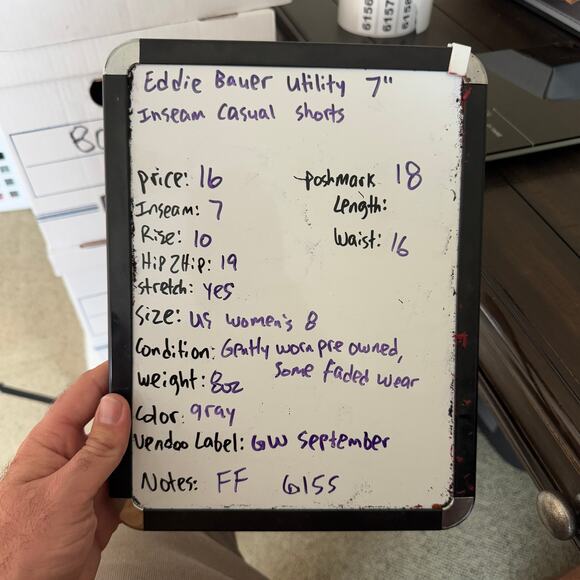 6156
6157
6158
BO
Eddie Bauer Utility 7"
Inseam Casual shorts
price: 16
Poshmark 18
Inseam: 7
Length:
Rise: 10
Waist: 16
Hip 2 Hip: 19
stretch: yes
Size: US women's 8
Condition: Gently worn pre owned,
some faded wear
weight: 8oz
Color: gray
Vendoo Label: GW September
Notes: FF 6155